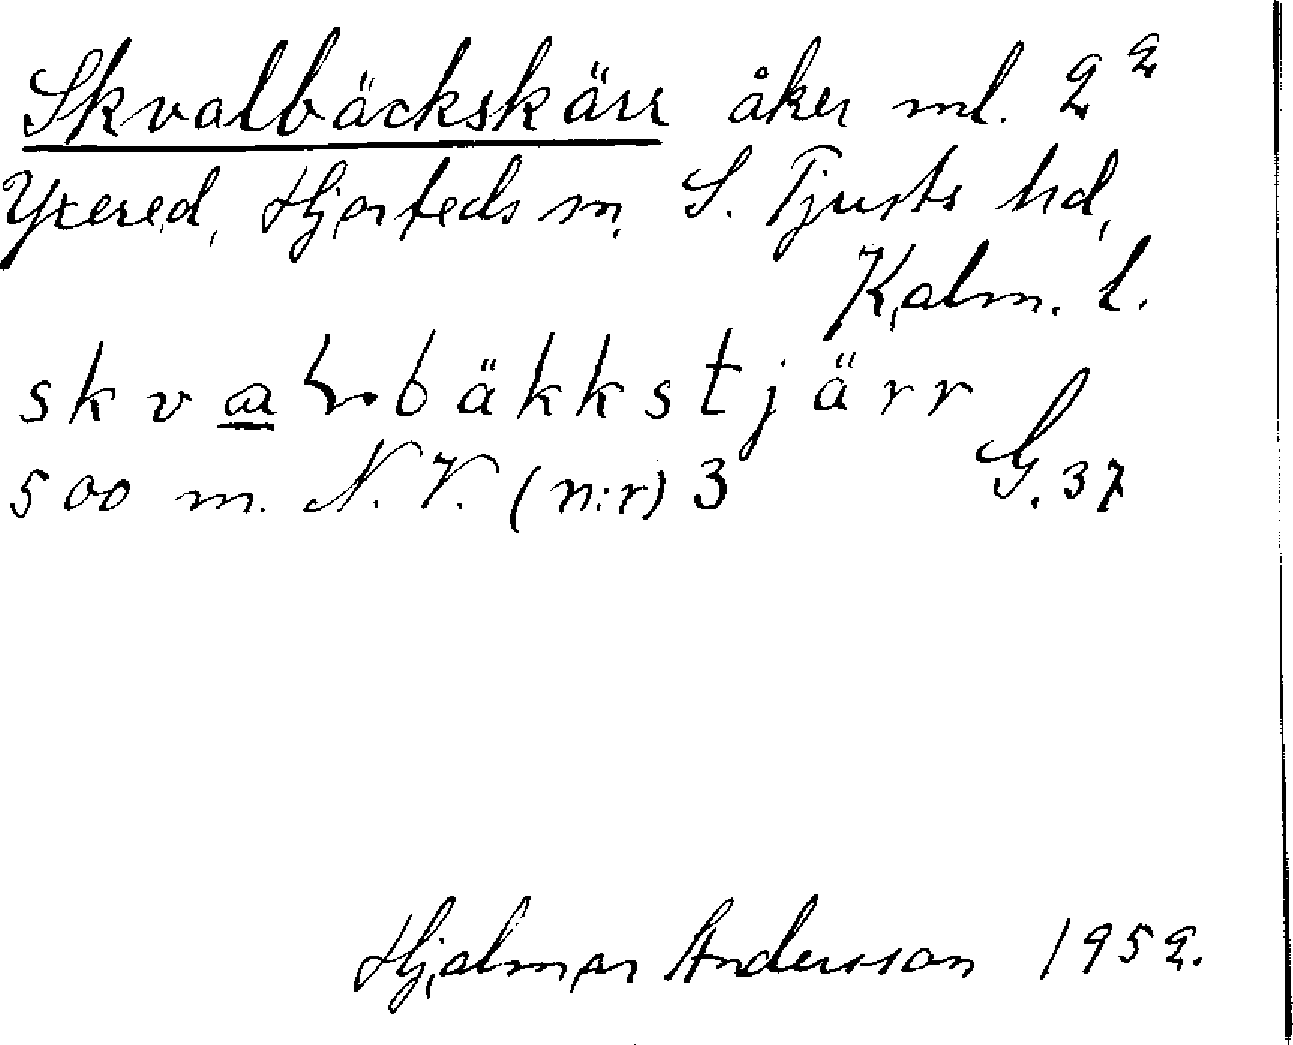 Skvalbäckskärr åker ml. 2²
Yxered, Hjorteds sn, S. Tjusts hd,
Kalm. l.
skvaḷbäkkstjärr
500 m. N.V. (n:r) 3 G. 37
Hjalmar Andersson 1952.